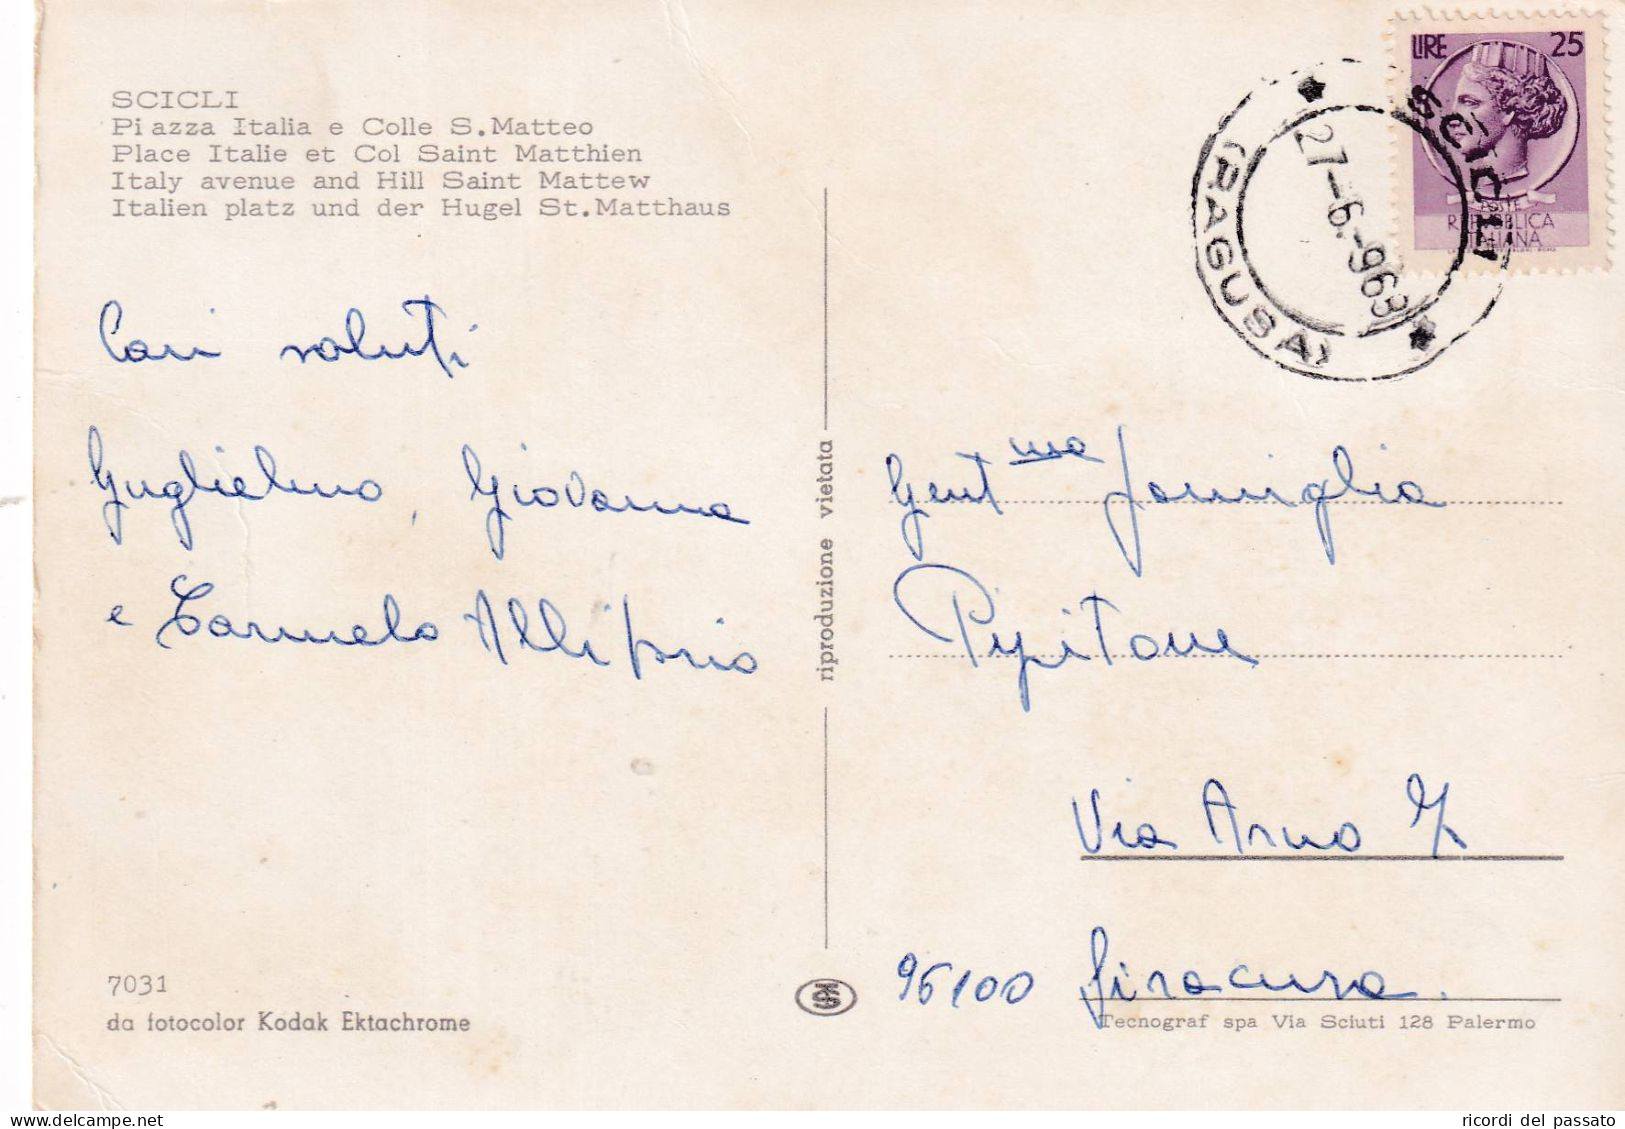 SCICLI
Piazza Italia e Colle S.Matteo
Place Italie et Col Saint Matthien
Italy avenue and Hill Saint Mattew
Italien platz und der Hugel St.Matthaus
Cari saluti
Guglielmo, Giovanna
e Carmelo Allibrio
7031
da fotocolor Kodak Ektachrome
riproduzione vietata
LIRE 25
POSTE
REPUBBLICA
ITALIANA
SCICLI
(RAGUSA)
27-6.-969
Gent ma famiglia
Pipitone
Via Arno
96100 Siracusa.
Tecnograf spa Via Sciuti 128 Palermo
delcampe.net
ricordi del passato